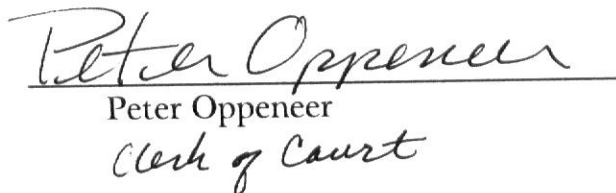 Peter Oppeneer
Peter Oppeneer
Clerk of Court